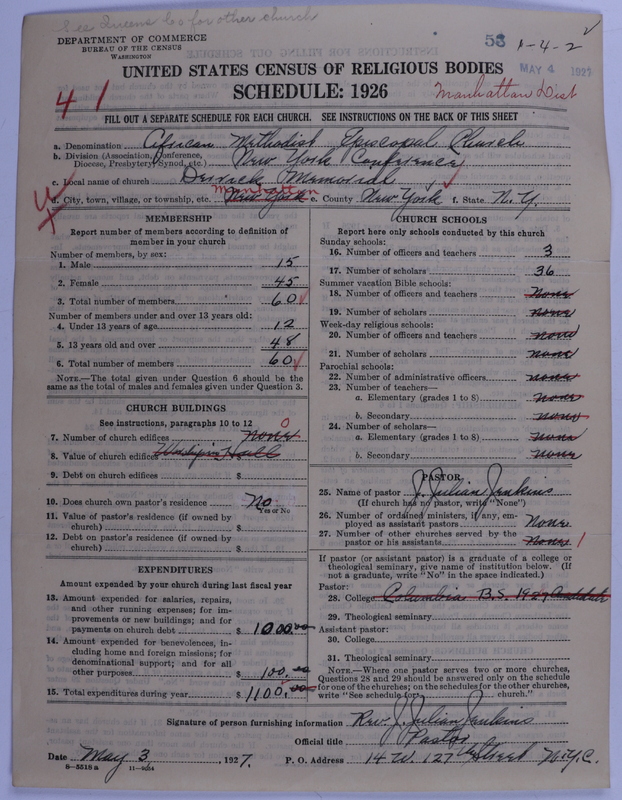 See Queens Co for other church
DEPARTMENT OF COMMERCE
BUREAU OF THE CENSUS
WASHINGTON
53 1-4-2
MAY 4 1927
UNITED STATES CENSUS OF RELIGIOUS BODIES
SCHEDULE: 1926
41
Manhattan Dist
FILL OUT A SEPARATE SCHEDULE FOR EACH CHURCH. SEE INSTRUCTIONS ON THE BACK OF THIS SHEET
a. Denomination African Methodist Episcopal Church
b. Division (Association, Conference, Diocese, Presbytery, Synod, etc.) New York Conference
c. Local name of church Derrick Memorial
Manhattan
d. City, town, village, or township, etc. New York e. County New York f. State N.Y.
MEMBERSHIP
Report number of members according to definition of
member in your church
Number of members, by sex:
1. Male 15
2. Female 45
3. Total number of members 60
Number of members under and over 13 years old:
4. Under 13 years of age 12
5. 13 years old and over 48
6. Total number of members 60
NOTE.—The total given under Question 6 should be the
same as the total of males and females given under Question 3.
CHURCH BUILDINGS
See instructions, paragraphs 10 to 12
7. Number of church edifices None 0
8. Value of church edifices Hall
9. Debt on church edifices $
10. Does church own pastor's residence No
Yes or No
11. Value of pastor's residence (if owned by
church) $
12. Debt on pastor's residence (if owned by
church) $
EXPENDITURES
Amount expended by your church during last fiscal year
13. Amount expended for salaries, repairs,
and other running expenses; for im-
provements or new buildings; and for
payments on church debt $ 1000.00
14. Amount expended for benevolences, in-
cluding home and foreign missions; for
denominational support; and for all
other purposes $ 100.00
15. Total expenditures during year $ 1100.00
CHURCH SCHOOLS
Report here only schools conducted by this church
Sunday schools:
16. Number of officers and teachers 3
17. Number of scholars 36
Summer vacation Bible schools:
18. Number of officers and teachers none
19. Number of scholars none
Week-day religious schools:
20. Number of officers and teachers none
21. Number of scholars none
Parochial schools:
22. Number of administrative officers none
23. Number of teachers—
a. Elementary (grades 1 to 8) none
b. Secondary none
24. Number of scholars—
a. Elementary (grades 1 to 8) none
b. Secondary none
PASTOR
25. Name of pastor J. Julian Jenkins
(If church has no pastor, write "None")
26. Number of ordained ministers, if any, em-
ployed as assistant pastors None
27. Number of other churches served by the
pastor or his assistants None 1
If pastor (or assistant pastor) is a graduate of a college or
theological seminary, give name of institution below. (If
not a graduate, write "No" in the space indicated.)
Pastor:
28. College Columbia B.S. 1927
29. Theological seminary
Assistant pastor:
30. College
31. Theological seminary
NOTE.—Where one pastor serves two or more churches,
Questions 28 and 29 should be answered only on the schedule
for one of the churches; on the schedules for the other churches,
write "See schedule for church."
Signature of person furnishing information Rev. J. Julian Jenkins
Official title Pastor
Date May 3, 1927. P. O. Address 14 W. 127th Street N.Y.C.
8-5518a 11-9014